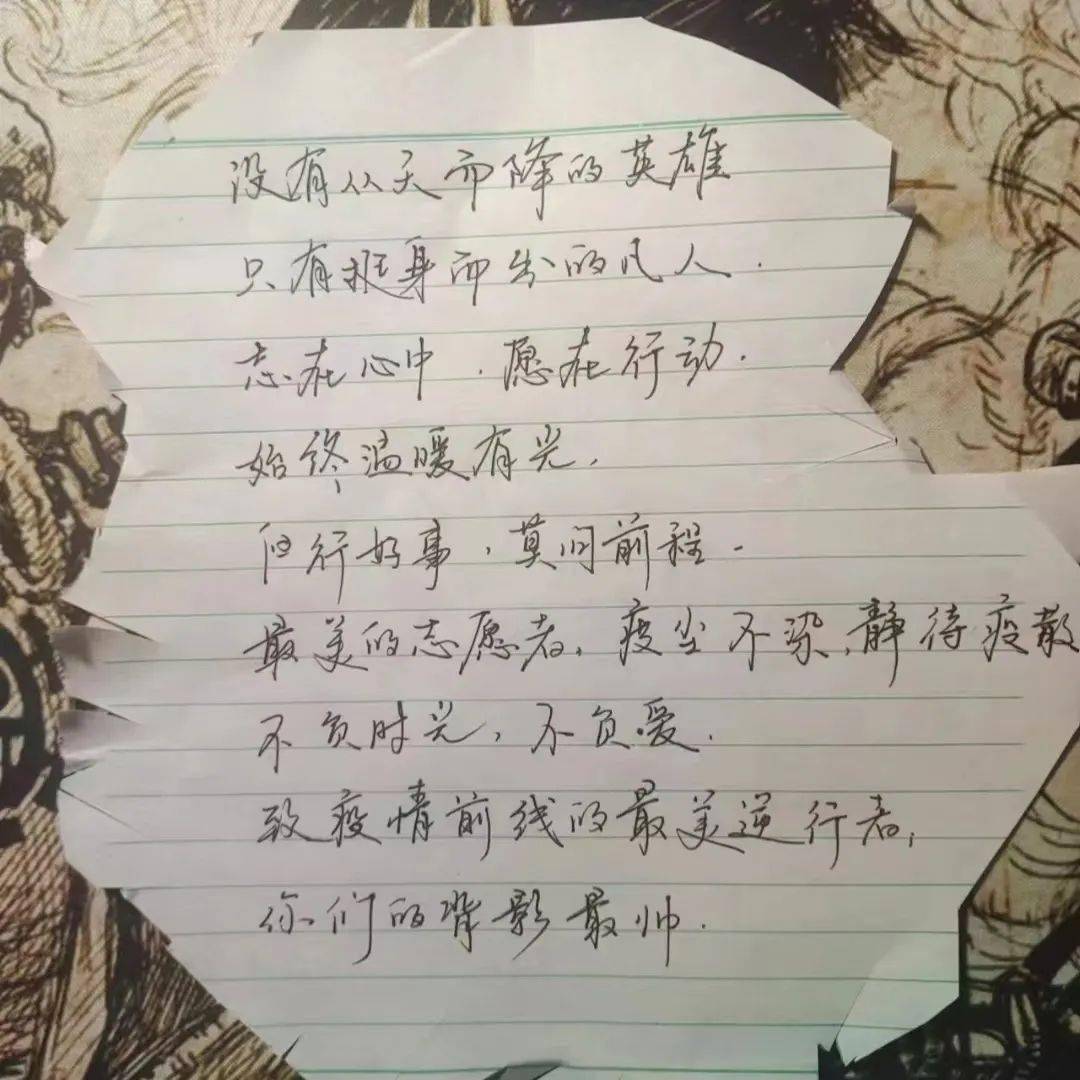 没有从天而降的英雄
只有挺身而出的凡人.
志在心中.愿在行动.
始终温暖有光,
但行好事,莫问前程.
最美的志愿者,疫尘不染,静待疫散
不负时光,不负爱.
致疫情前线的最美逆行者,
你们的背影最帅.